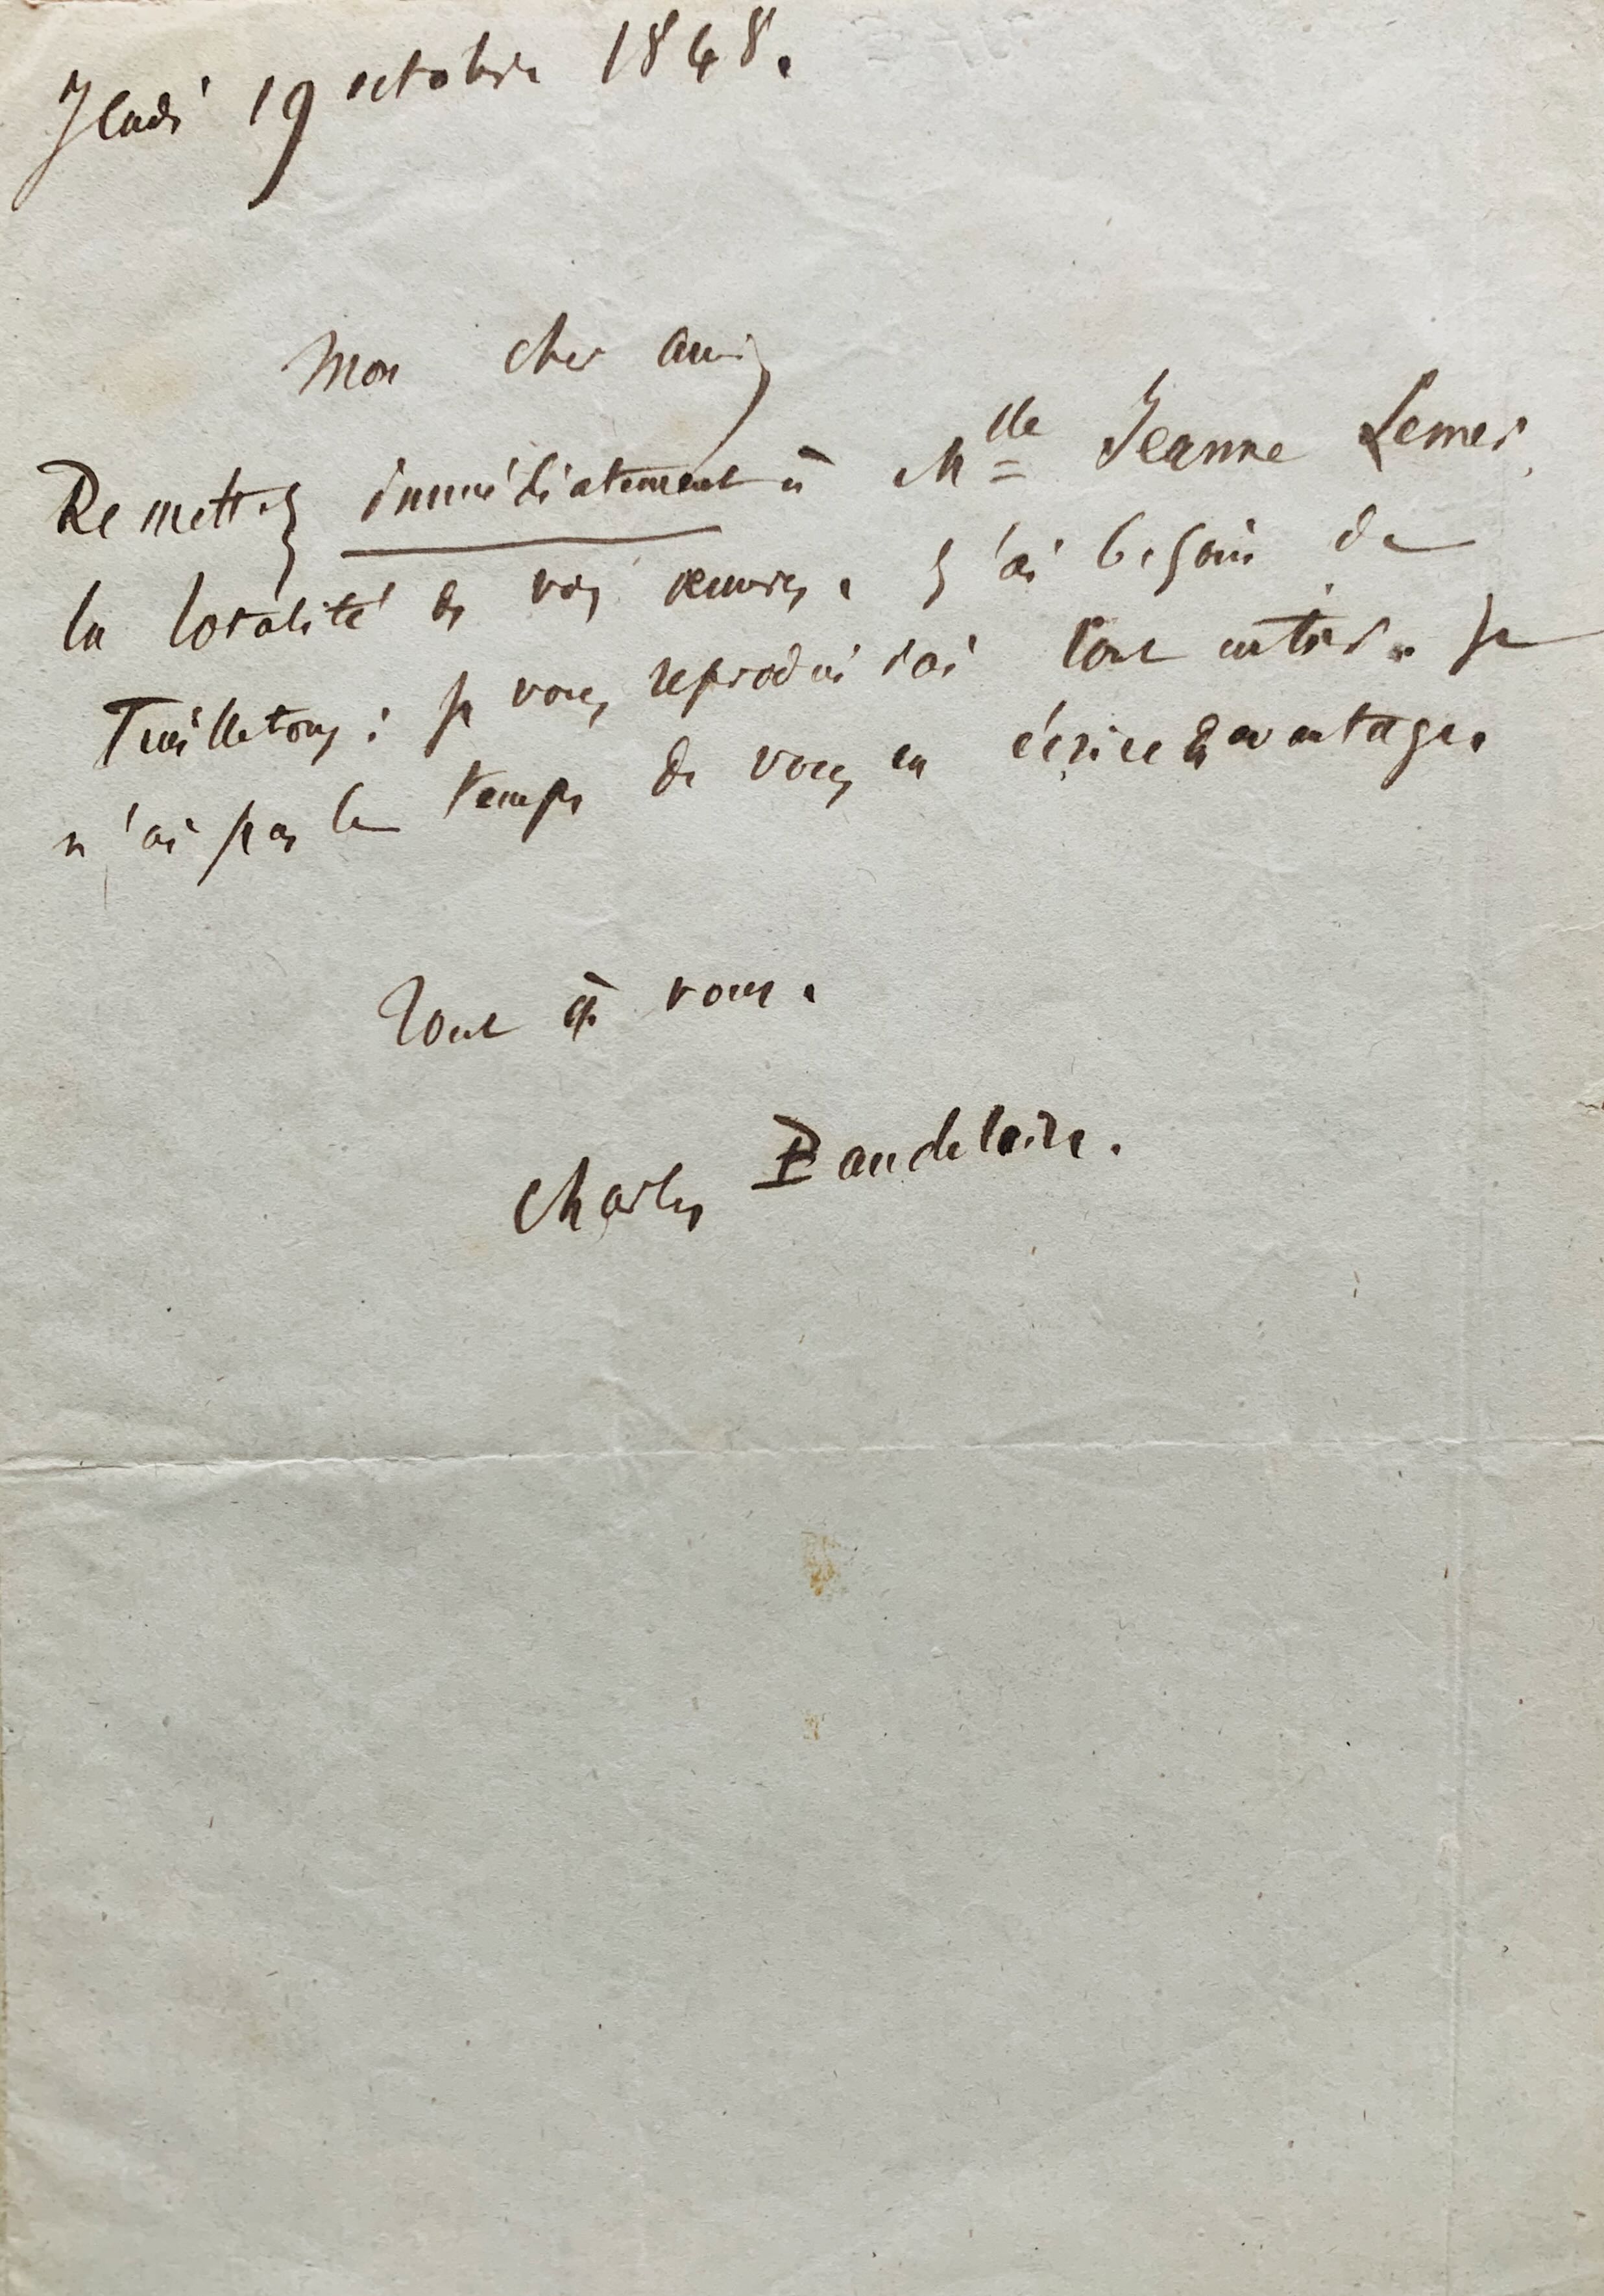 Jeudi 19 octobre 1848.
Mon cher ami,
Remettez immédiatement à Mlle Jeanne Lemer,
la totalité de vos œuvres. J'ai besoin de
Feuilletons ; je vous reproduirai tout entier. Je
n'ai pas le temps de vous en écrire davantage.
Tout à vous.
Charles Baudelaire.